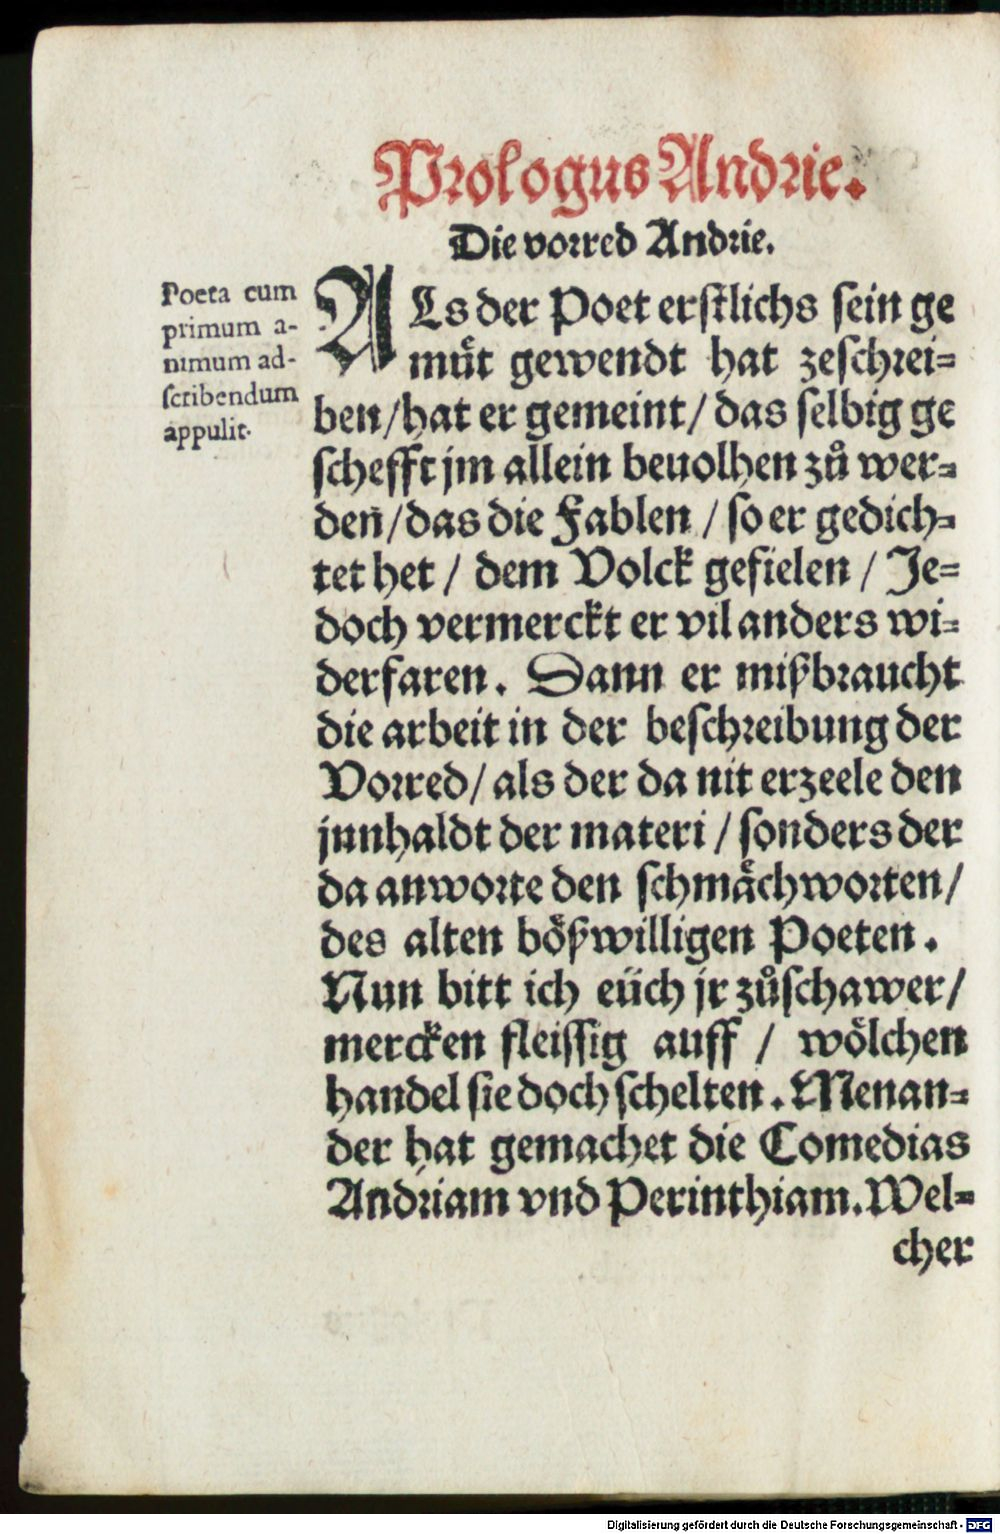 Prologus Andrie.
Die vorred Andrie.
Poeta cum
primum a-
nimum ad-
scribendum
appulit.
ALs der Poet erstlichs sein ge
muͤt gewendt hat zeschrei=
ben/hat er gemeint/ das selbig ge
schefft jm allein beuolhen zů wer=
den/das die Fablen / so er gedich=
tet het / dem Volck gefielen / Je=
doch vermerckt er vil anders wi=
derfaren. Dann er mißbraucht
die arbeit in der beschreibung der
Vorred/ als der da nit erzeele den
jnnhaldt der materi / sonders der
da anworte den schmaͤchworten/
des alten boͤßwilligen Poeten.
Nun bitt ich euͤch jr zůschawer/
mercken fleissig auff / woͤlchen
handel sie doch schelten. Menan=
der hat gemachet die Comedias
Andriam vnd Perinthiam. Wel=
cher
Digitalisierung gefördert durch die Deutsche Forschungsgemeinschaft - DFG